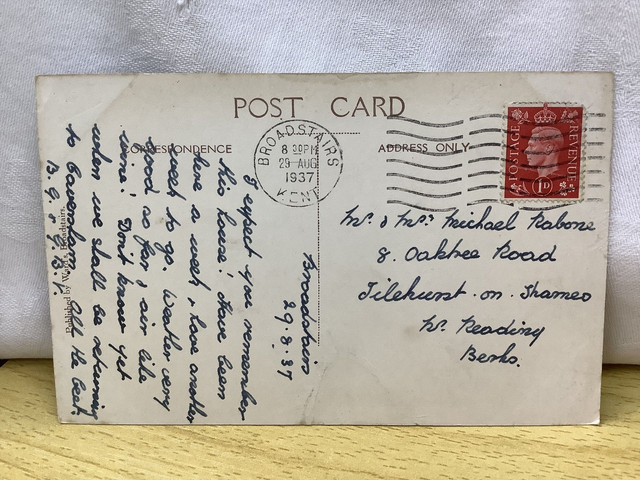 POST CARD
CORRESPONDENCE
ADDRESS ONLY
BROADSTAIRS
8 30PM
29 AUG
1937
KENT
POSTAGE
REVENUE
1D
Mr. & Mrs. Michael Rabone
8. Oaktree Road
Tilehurst.on.Thames
Nr. Reading
Berks.
Broadstairs
29.8.37
I expect you remember
this house! Have been
here a week & have another
week to go. Weather very
good so far & air like
wine! Don't know yet
when we shall be returning
to Caversham. All the best.
Published by Broadstairs.